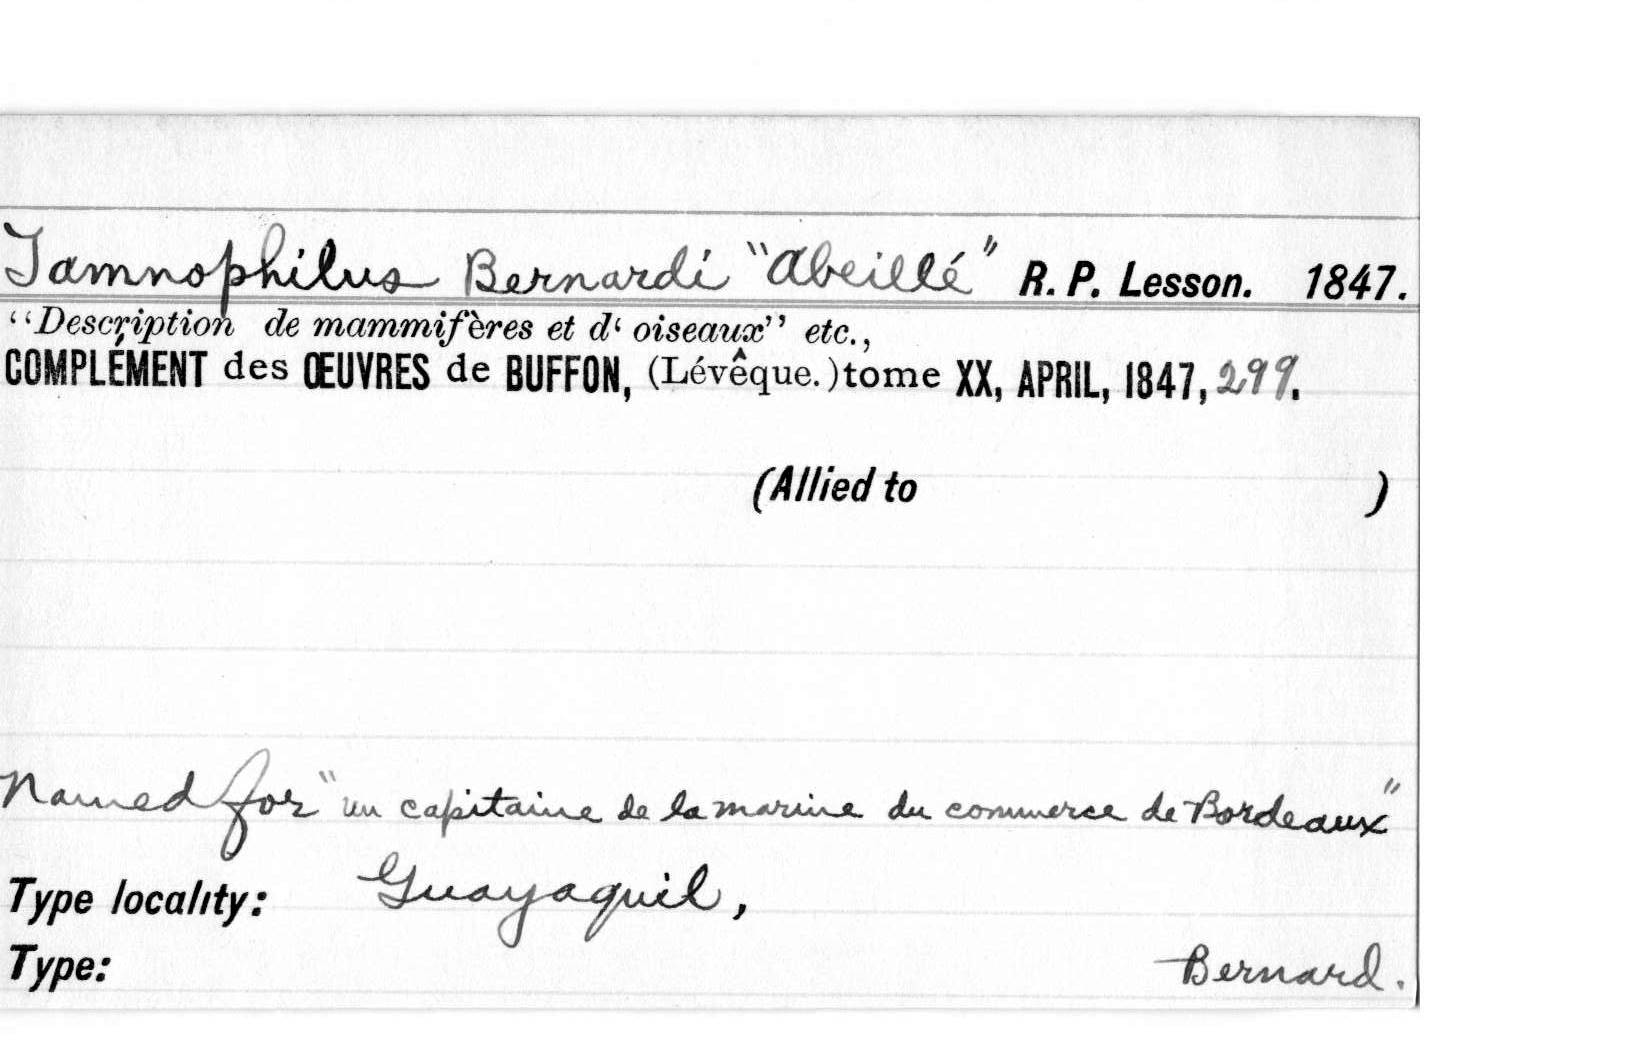 Tamnophilus Bernardi "Abeillé" R. P. Lesson. 1847.
"Description de mammifères et d‘ oiseaux" etc.,
COMPLÉMENT des ŒUVRES de BUFFON, (Lévêque.) tome XX, APRIL, 1847, 299.
(Allied to )
Named for "un capitaine de la marine du commerce de Bordeaux"
Type locality: Guayaquil,
Type: Bernard.